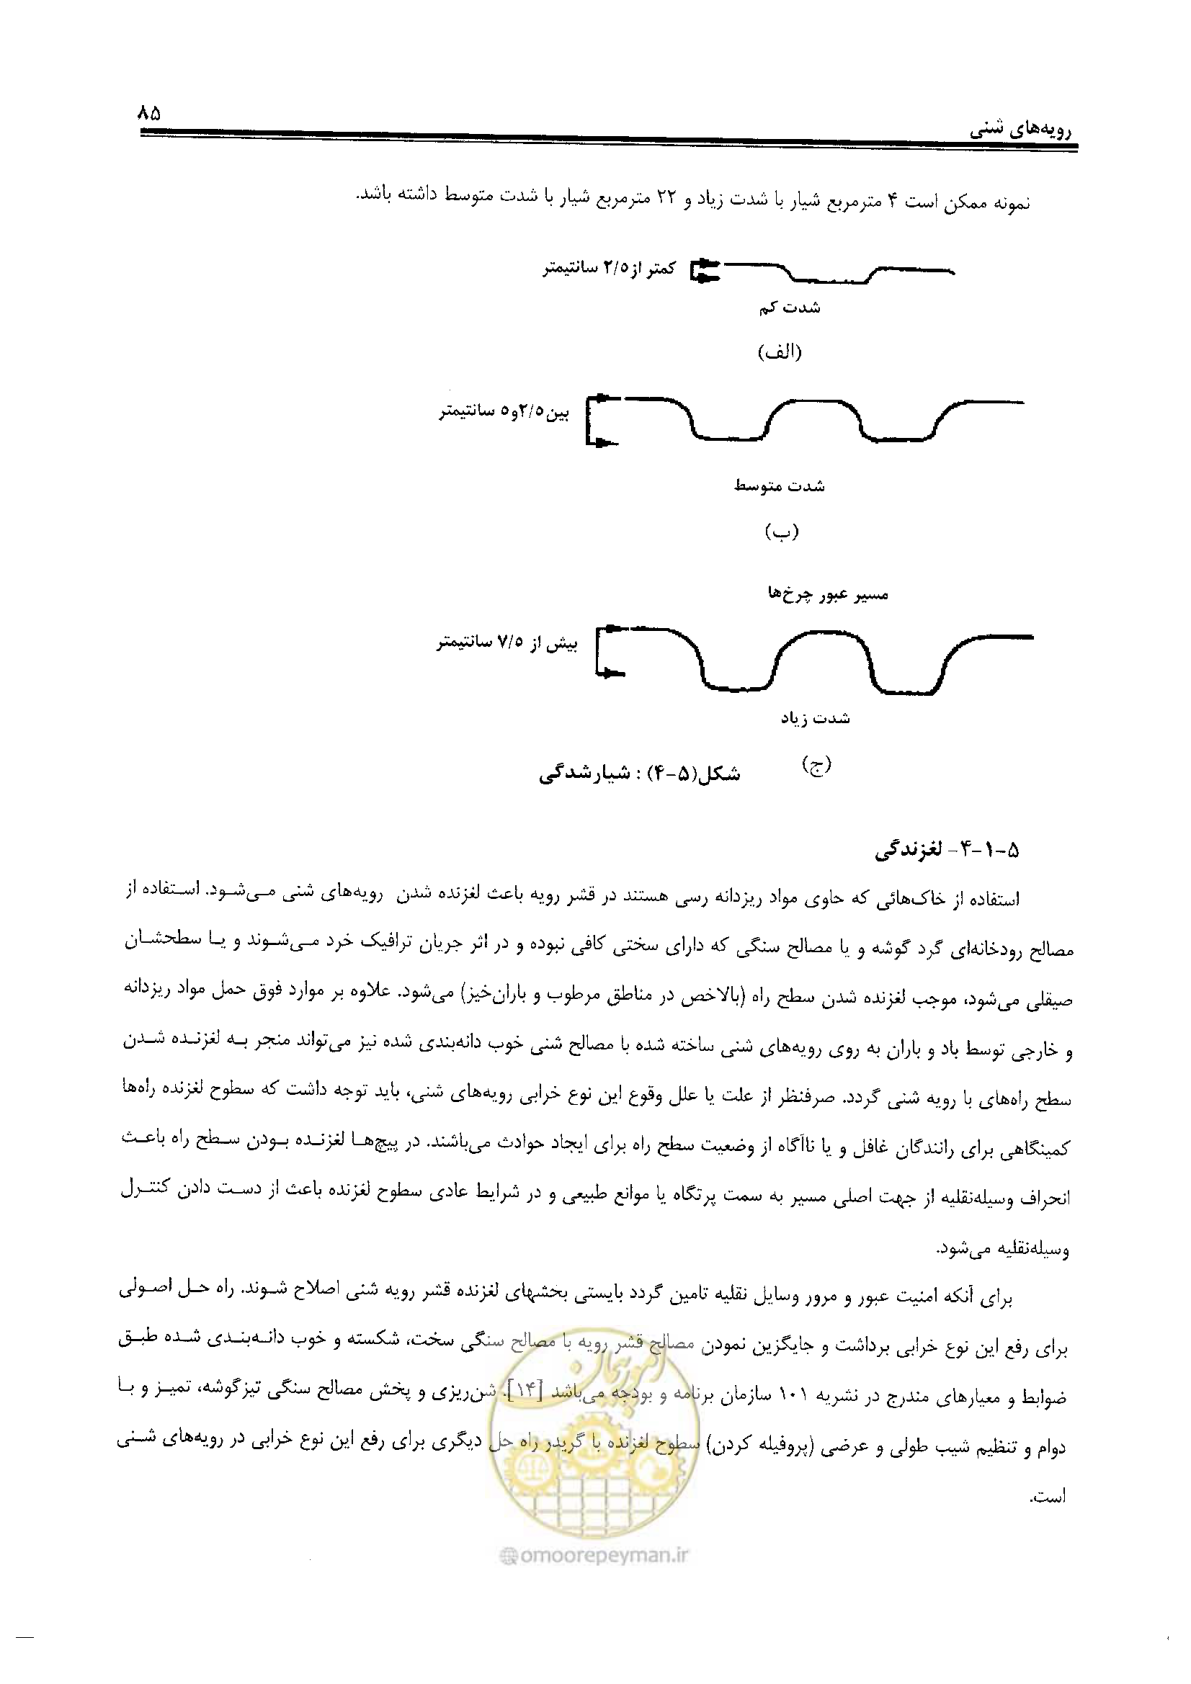 ۸۵
رویه‌های شنی
نمونه ممکن است ۴ مترمربع شیار با شدت زیاد و ۲۲ مترمربع شیار با شدت متوسط داشته باشد.
کمتر از ۲/۵ سانتیمتر
شدت کم
(الف)
بین ۲/۵و۵ سانتیمتر
شدت متوسط
(ب)
مسیر عبور چرخ‌ها
بیش از ۷/۵ سانتیمتر
شدت زیاد
(ج)
شکل(۵-۴) : شیارشدگی
۵-۱-۴- لغزندگی
استفاده از خاک‌هائی که حاوی مواد ریزدانه رسی هستند در قشر رویه باعث لغزنده شدن رویه‌های شنی می‌شود. استفاده از
مصالح رودخانه‌ای گرد گوشه و یا مصالح سنگی که دارای سختی کافی نبوده و در اثر جریان ترافیک خرد می‌شوند و یا سطحشان
صیقلی می‌شود، موجب لغزنده شدن سطح راه (بالاخص در مناطق مرطوب و باران‌خیز) می‌شود. علاوه بر موارد فوق حمل مواد ریزدانه
و خارجی توسط باد و باران به روی رویه‌های شنی ساخته شده با مصالح شنی خوب دانه‌بندی شده نیز می‌تواند منجر به لغزنده شدن
سطح راه‌های با رویه شنی گردد. صرفنظر از علت یا علل وقوع این نوع خرابی رویه‌های شنی، باید توجه داشت که سطوح لغزنده راه‌ها
کمینگاهی برای رانندگان غافل و یا ناآگاه از وضعیت سطح راه برای ایجاد حوادث می‌باشند. در پیچ‌ها لغزنده بودن سطح راه باعث
انحراف وسیله‌نقلیه از جهت اصلی مسیر به سمت پرتگاه یا موانع طبیعی و در شرایط عادی سطوح لغزنده باعث از دست دادن کنترل
وسیله‌نقلیه می‌شود.
برای آنکه امنیت عبور و مرور وسایل نقلیه تامین گردد بایستی بخشهای لغزنده قشر رویه شنی اصلاح شوند. راه حل اصولی
برای رفع این نوع خرابی برداشت و جایگزین نمودن مصالح قشر رویه با مصالح سنگی سخت، شکسته و خوب دانه‌بندی شده طبق
ضوابط و معیارهای مندرج در نشریه ۱۰۱ سازمان برنامه و بودجه می‌باشد [۱۴]. شن‌ریزی و پخش مصالح سنگی تیزگوشه، تمیز و با
دوام و تنظیم شیب طولی و عرضی (پروفیله کردن) سطوح لغزنده با گریدر راه حل دیگری برای رفع این نوع خرابی در رویه‌های شنی
است.
امور پیمان
@omoorepeyman.ir